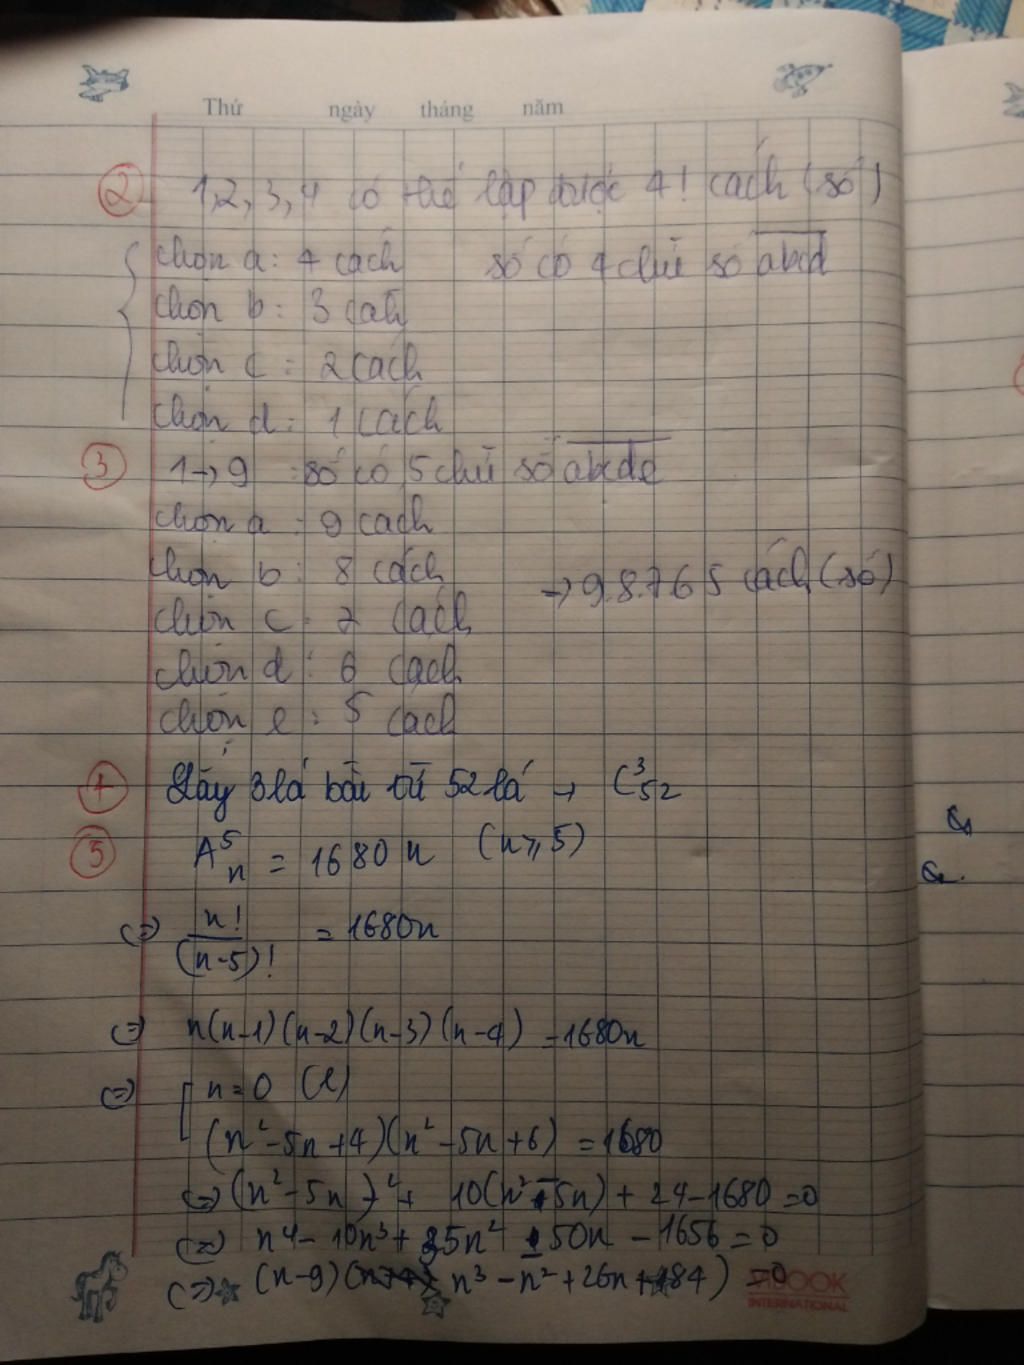 Thứ ngày tháng năm
② 1,2,3,4 có thể lập được 4! cách (số)
chọn a: 4 cách số có 4 chữ số abcd
chọn b: 3 cách
chọn c: 2 cách
chọn d: 1 cách
③ 1→9 số có 5 chữ số abcde
chọn a: 9 cách
chọn b: 8 cách → 9.8.7.6.5 cách (số)
chọn c: 7 cách
chọn d: 6 cách
chọn e: 5 cách
④ Lấy 3 lá bài từ 52 lá → C³₅₂
⑤ A⁵ₙ = 1680n (n≥5)
(=) n!/(n-5)! = 1680n
(=) n(n-1)(n-2)(n-3)(n-4) = 1680n
(=) [ n=0 (l)
(n²-5n+4)(n²-5n+6) = 1680
(=) (n²-5n)² + 10(n²-5n) + 24-1680=0
(=) n⁴-10n³+35n²-50n-1656=0
(=) (n-9)(n³-n²+26n+184)=0
BOOK
INTERNATIONAL